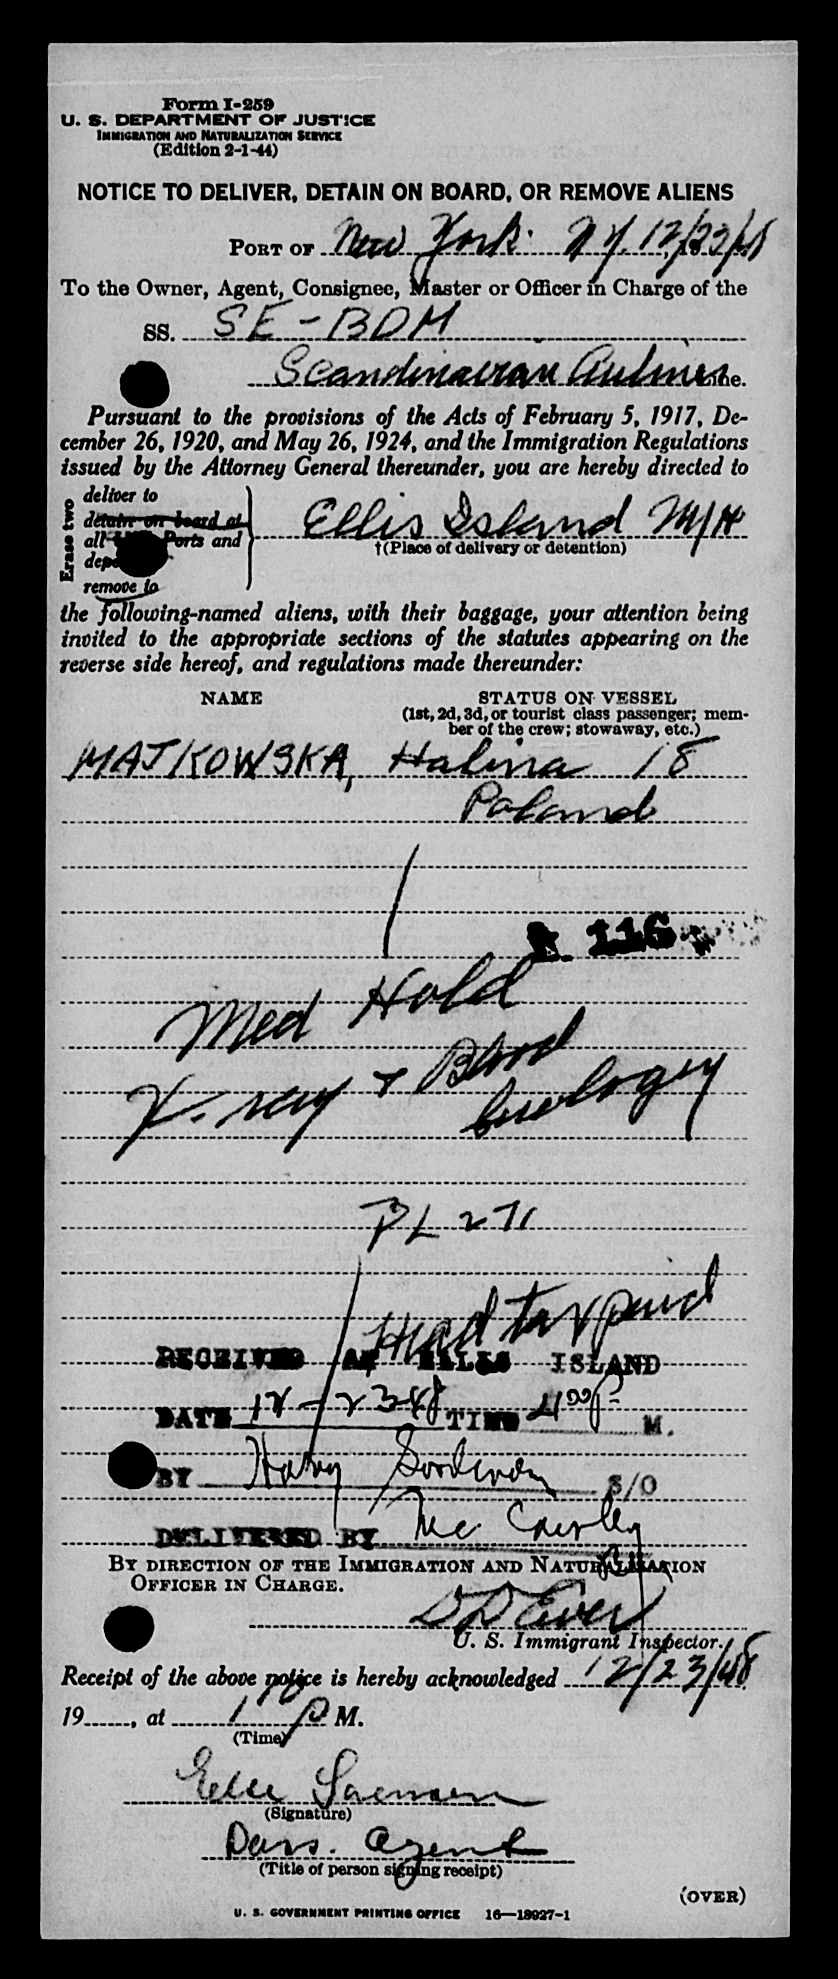 Form I-259
U. S. DEPARTMENT OF JUSTICE
IMMIGRATION AND NATURALIZATION SERVICE
(Edition 2-1-44)
NOTICE TO DELIVER, DETAIN ON BOARD, OR REMOVE ALIENS
PORT OF New York NY. 12/23/48
To the Owner, Agent, Consignee, Master or Officer in Charge of the
SS. SE-BDM
Scandinavian Airlines Line.
Pursuant to the provisions of the Acts of February 5, 1917, De-
cember 26, 1920, and May 26, 1924, and the Immigration Regulations
issued by the Attorney General thereunder, you are hereby directed to
Erase two
deliver to
detain on board at
all Ports and
remove to
Ellis Island
†(Place of delivery or detention)
the following-named aliens, with their baggage, your attention being
invited to the appropriate sections of the statutes appearing on the
reverse side hereof, and regulations made thereunder:
NAME STATUS ON VESSEL
(1st, 2d, 3d, or tourist class passenger; mem-
ber of the crew; stowaway, etc.)
MAJKOWSKA, Halina 18
Poland
116
Med Hold
X-ray + Blood
PL 271
Head tax paid
RECEIVED AT ELLIS ISLAND
DATE 12-23-48 TIME 4 00 P M.
BY Harry S/O
DELIVERED BY
BY DIRECTION OF THE IMMIGRATION AND NATURALIZATION
OFFICER IN CHARGE.
U. S. Immigrant Inspector.
Receipt of the above notice is hereby acknowledged 12/23/48
19___, at 1 P M.
(Time)
(Signature)
Agent
(Title of person signing receipt)
(OVER)
U. S. GOVERNMENT PRINTING OFFICE 16—18927-1